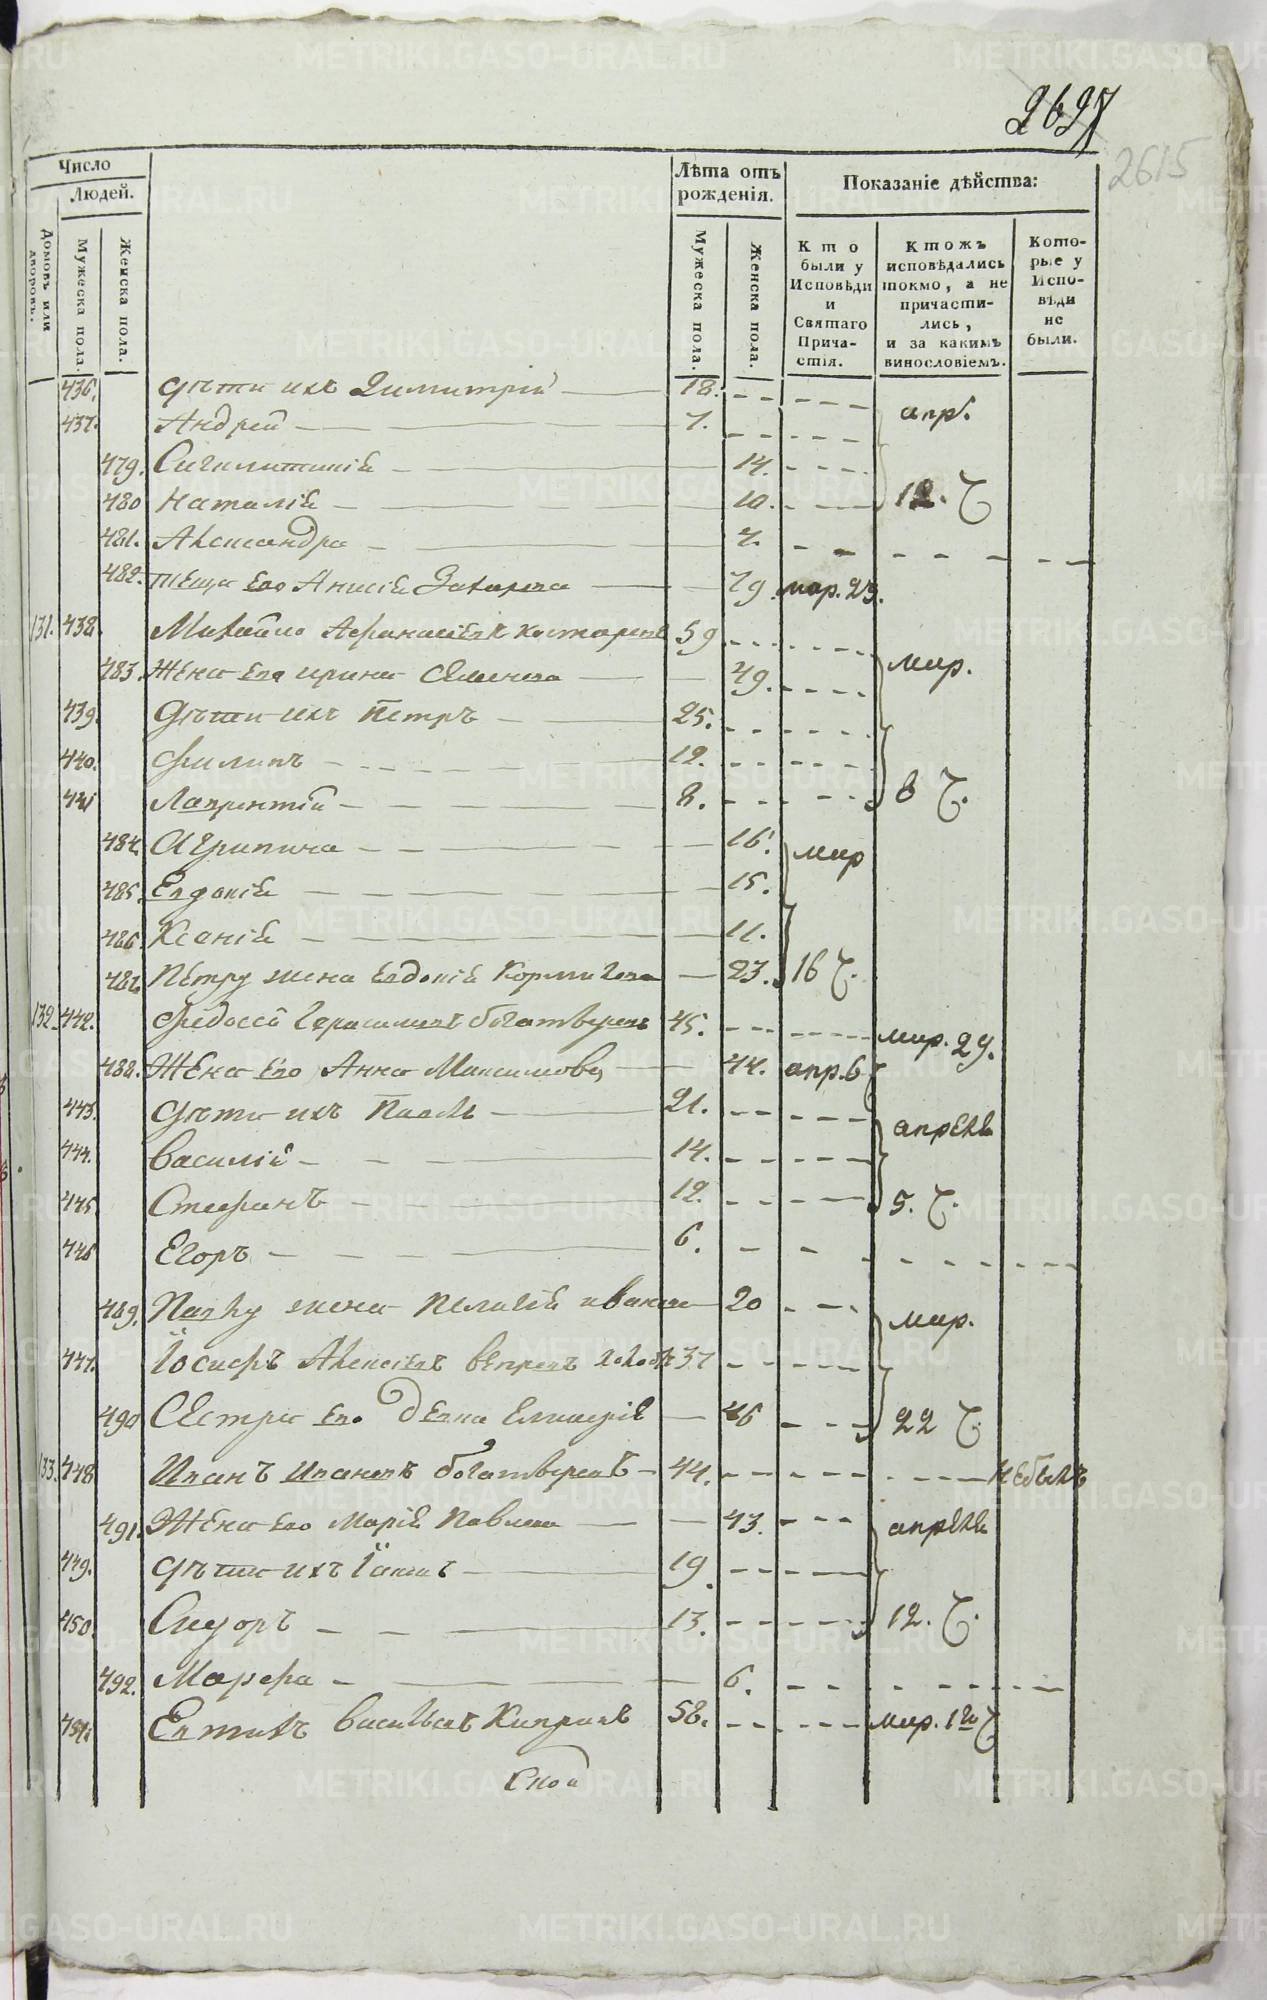 2697
2615
Число
Людей.
Домовъ или дворовъ.
Мужеска пола.
Женска пола.
Лѣта отъ рожденія.
Мужеска пола.
Женска пола.
Показаніе дѣйства:
Кто были у Исповѣди и Святаго Причастія.
Ктожъ исповѣдались токмо, а не причастились, и за какимъ винословіемъ.
Которые у Исповѣди не были.
436. дѣти ихъ Димитрій 18.
437. Андрей 7. апр.
479. 14.
480 Наталія 10. 12. Ч
481. Александра 4.
482. теща его Анисія Захарова 79. мар. 23.
131. 438. Михайло Афанасіевъ 59
483. Жена его ирина Семенова 49. мар.
439. Дѣти ихъ Петръ 25.
440. Филипъ 12.
441 Лаврентій 8. 8 Ч.
484. Агрипина 16. мар
485. Евдокія 15.
486. Ксенія 11.
487. Петру жена Евдокія 23. 16 Ч.
132. 442. Федосей Герасимовъ богатыревъ 45. мар. 29.
488. Жена его Анна Максимова 44. апр. 6
443. дѣти ихъ Павелъ 21. апрѣля
444. Василій 14.
445 Стефанъ 12. 5. Ч.
446 Егоръ 6.
489. Павлу жена Пелагія иванова 20 мар.
447. Іосифъ Алексіевъ вепревъ холостъ 37
490 Сестра его дѣвка 46 22 Ч.
133. 448 Иванъ Ивановъ богатыревъ 44. небылъ
491. Жена его Марія Павлова 43. апрѣля
449. дѣти ихъ Іаковъ 19.
450. Сидоръ 13. 12. Ч.
492. Марфа 6.
451. Васильевъ 58. мар. 1го Ч
METRIKI.GASO-URAL.RU